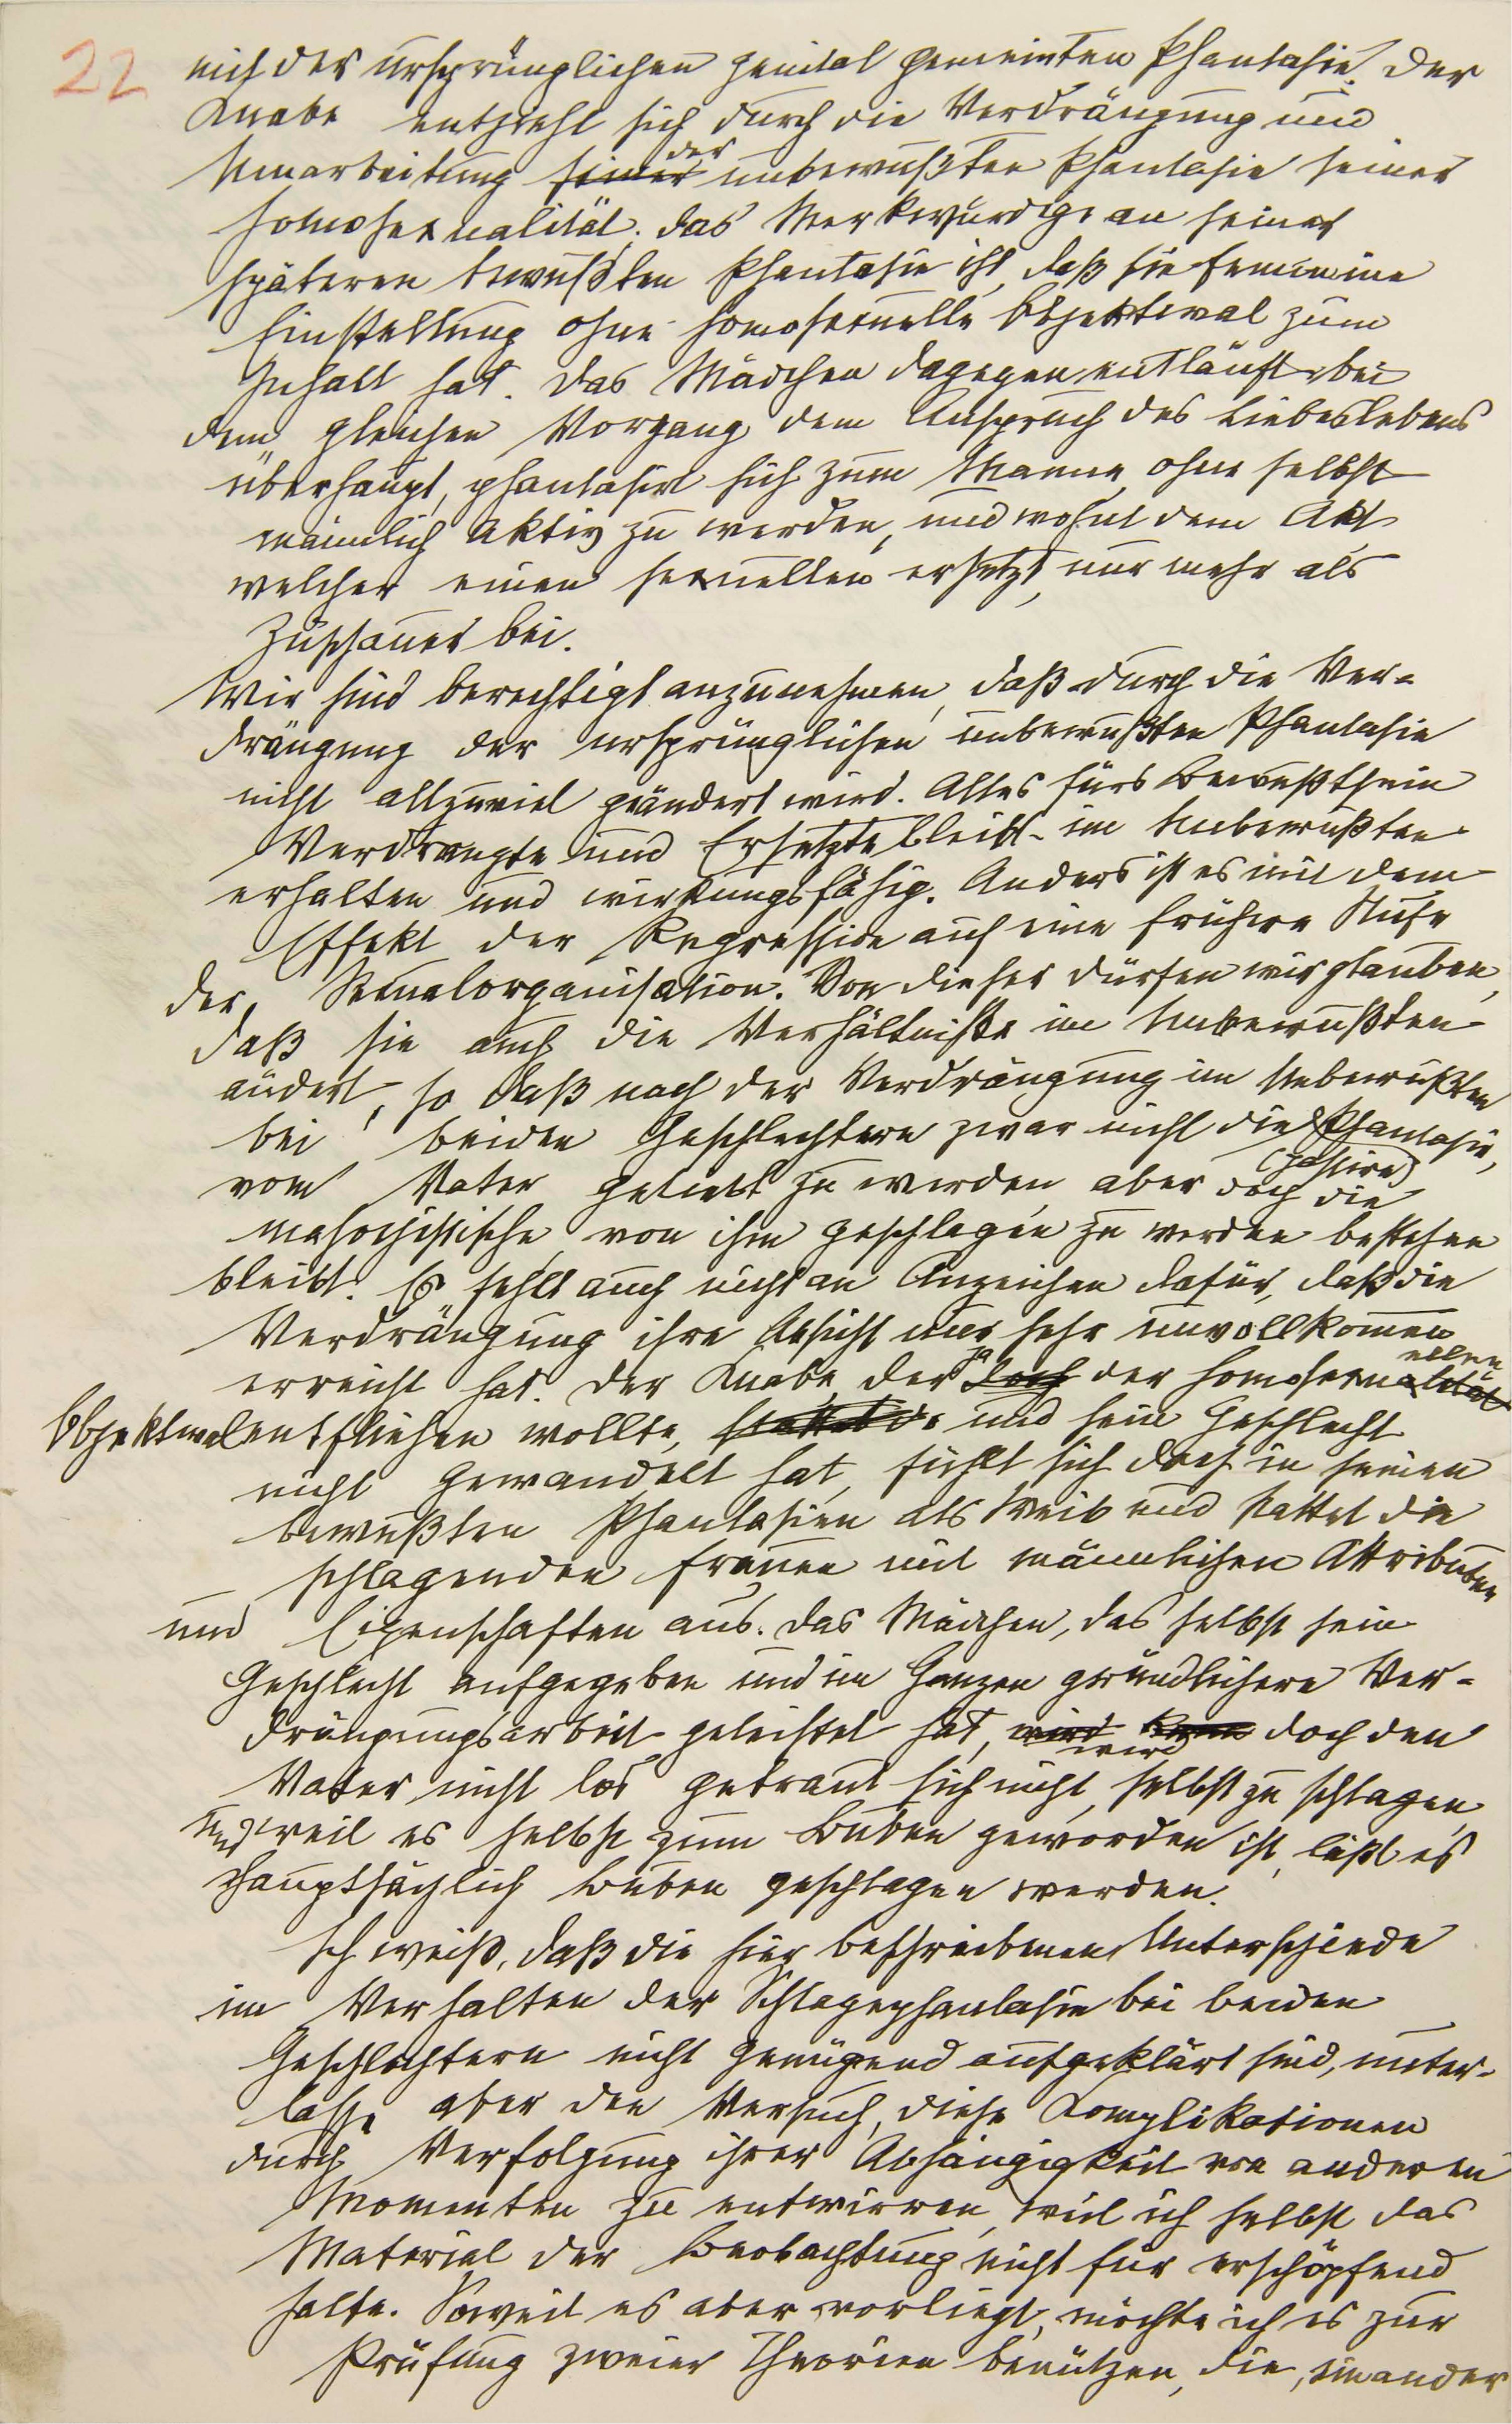 22
nis der ursprünglichen genital gemeinten Phantasie. Der
Knabe entzieht sich durch die Verdrängung und
Umarbeitung seiner der unbewußten Phantasie seiner
Homosexualität; das Merkwürdige an seiner
späteren bewußten Phantasie ist, daß sie feminine
Einstellung ohne homosexuelle Objektwal zum
Inhalt hat. Das Mädchen dagegen entläuft bei
dem gleichen Vorgang dem Anspruch des Liebeslebens
überhaupt, phantasirt sich zum Manne, ohne selbst
männlich aktiv zu werden, und wohnt dem Akt
welcher einen sexuellen ersetzt, nur mehr als
Zuschauer bei.
Wir sind berechtigt anzunehmen, daß durch die Ver-
drängung der ursprünglichen unbewußten Phantasie
nicht allzuviel geändert wird. Alles fürs Bewußtsein
Verdrängte und Ersetzte bleibt im Unbewußten
erhalten und wirkungsfähig. Anders ist es mit dem
Effekt der Regression auf eine frühere Stufe
der Sexualorganisation. Von dieser dürfen wir glauben,
daß sie auch die Verhältniße im Unbewußten
ändert, so daß nach der Verdrängung im Unbewußten
bei beiden Geschlechtern zwar nicht die Phantasie,
vom Vater geliebt zu werden aber doch die (passive)
masochistische, von ihm geschlagen zu werden bestehen
bleibt. Es fehlt auch nicht an Anzeichen dafür, daß die
Verdrängung ihre Absicht nur sehr unvollkommen
erreicht hat. Der Knabe, der doch ja der homosexualität ellen
Objektwal entfliehen wollte, und sein Geschlecht
nicht gewandelt hat, fühlt sich doch in seinen
bewußten Phantasien als Weib und stattet die
schlagenden Frauen mit männlichen Attributen
und Eigenschaften aus. Das Mädchen, das selbst sein
Geschlecht aufgegeben und im Ganzen gründlichere Ver-
drängungsarbeit geleistet hat, wird wird doch den
Vater nicht los getraut sich nicht, selbst zu schlagen,
und weil es selbst zum Buben geworden ist, läßt es
hauptsächlich Buben geschlagen werden.
Ich weiß, daß die hier beschriebenen Unterschiede
im Verhalten der Schlagephantasie bei beiden
Geschlechtern nicht genügend aufgeklärt sind, unter-
lasse aber den Versuch, diese Komplikationen
durch Verfolgung ihrer Abhängigkeit von anderen
Momenten zu entwirren, weil ich selbst das
Material der Beobachtung nicht für erschöpfend
halte. Soweit es aber vorliegt, möchte ich es zur
Prüfung zweier Theorien benützen, die, einander